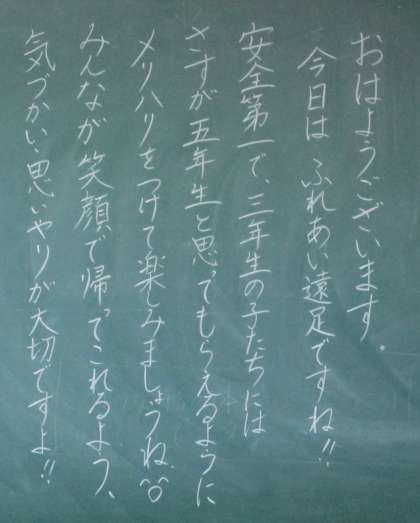 おはようございます。
今日は ふれあい遠足ですね!!
安全第一で、三年生の子たちには
さすが五年生と思ってもらえるように
メリハリをつけて楽しみましょうね。
みんなが笑顔で帰ってこれるよう、
気づかい、思いやりが大切ですよ!!